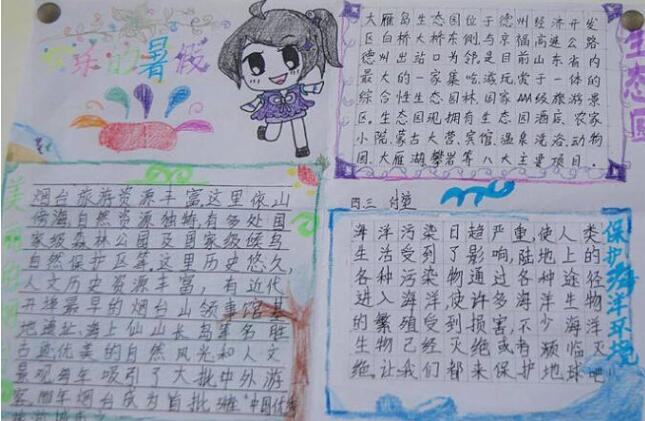 欢乐的暑假
大雁岛生态园位于德州经济开发
区白桥大桥东侧,与京福高速公路
德州出站口为邻,是目前山东省内
最大的一家集吃喝玩赏于一体的
综合性生态园林,国家AAA级旅游景
区。生态园现拥有生态园酒店、农家
小院、蒙古大营、宾馆、温泉洗浴、动物
园、大雁湖、攀岩等八大主要项目。
生态园
美丽的
烟台旅游资源丰富,这里依山
傍海,自然资源独特,有多处国
家级森林公园及国家级候鸟
自然保护区等,这里历史悠久,
人文历史资源丰富,有近代
开埠最早的烟台山领事馆基
地遗址,海上仙山长岛等名胜
古迹,优美的自然风光和人文
景观每年吸引了大批中外游
客,年烟台成为首批"中国优
四三 付
海洋污染日趋严重,使人类
生活受到了影响,陆地上的
各种污染物通过各种途径
进入海洋,使许多海洋生物
的繁殖受到损害,不少海洋
生物已经灭绝或有濒临灭
绝,让我们都来保护地球吧!
保护海洋环境